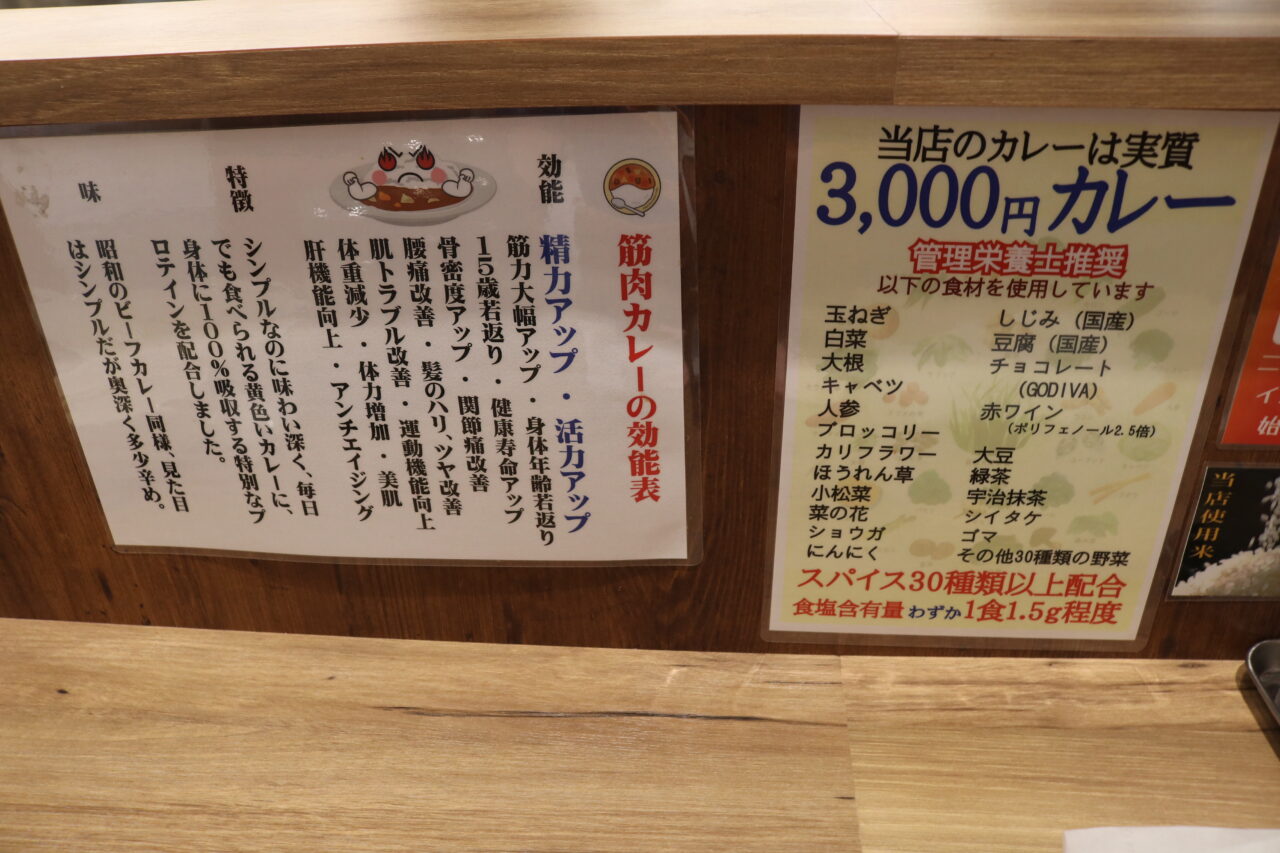 筋肉カレーの効能表
効能
精力アップ・活力アップ
筋力大幅アップ・身体年齢若返り
15歳若返り・健康寿命アップ
骨密度アップ・関節痛改善
腰痛改善・髪のハリ、ツヤ改善
肌トラブル改善・運動機能向上
体重減少・体力増加・美肌
肝機能向上・アンチエイジング
特徴
シンプルなのに味わい深く、毎日
でも食べられる黄色いカレーに、
身体に100%吸収する特別なプ
ロテインを配合しました。
味
昭和のビーフカレー同様、見た目
はシンプルだが奥深く多少辛め。
当店のカレーは実質
3,000円カレー
管理栄養士推奨
以下の食材を使用しています
玉ねぎ
白菜
大根
キャベツ
人参
ブロッコリー
カリフラワー
ほうれん草
小松菜
菜の花
ショウガ
にんにく
しじみ（国産）
豆腐（国産）
チョコレート
（GODIVA）
赤ワイン
（ポリフェノール2.5倍）
大豆
緑茶
宇治抹茶
シイタケ
ゴマ
その他30種類の野菜
スパイス30種類以上配合
食塩含有量 わずか1食1.5g程度
当店使用米